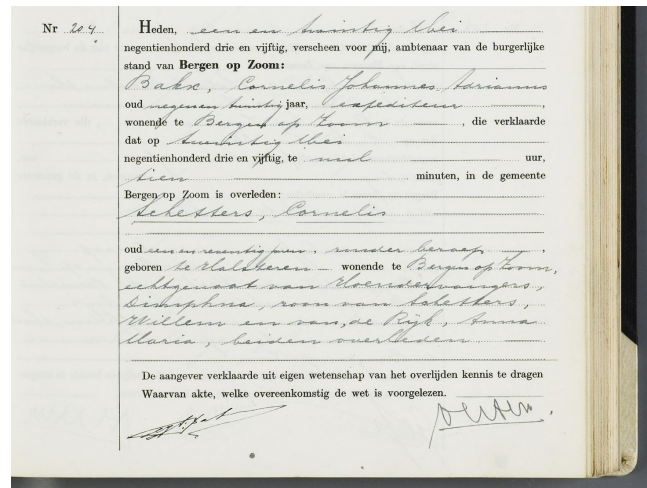 Nr 204
Heden, een en twintig Mei
negentienhonderd drie en vijftig, verscheen voor mij, ambtenaar van de burgerlijke
stand van Bergen op Zoom:
Bakx, Cornelis Johannes Adrianus
oud negenentwintig jaar, expediteur ,
wonende te Bergen op Zoom , die verklaarde
dat op twintig Mei
negentienhonderd drie en vijftig, te nul uur,
tien minuten, in de gemeente
Bergen op Zoom is overleden:
Schetters, Cornelis
oud eenenzeventig jaren, zonder beroep ,
geboren te Halsteren wonende te Bergen op Zoom,
echtgenoot van Hoendervangers,
Dimphna, zoon van Schetters,
Willem en van, de Rijk, Anna
Maria, beiden overleden
De aangever verklaarde uit eigen wetenschap van het overlijden kennis te dragen
Waarvan akte, welke overeenkomstig de wet is voorgelezen.